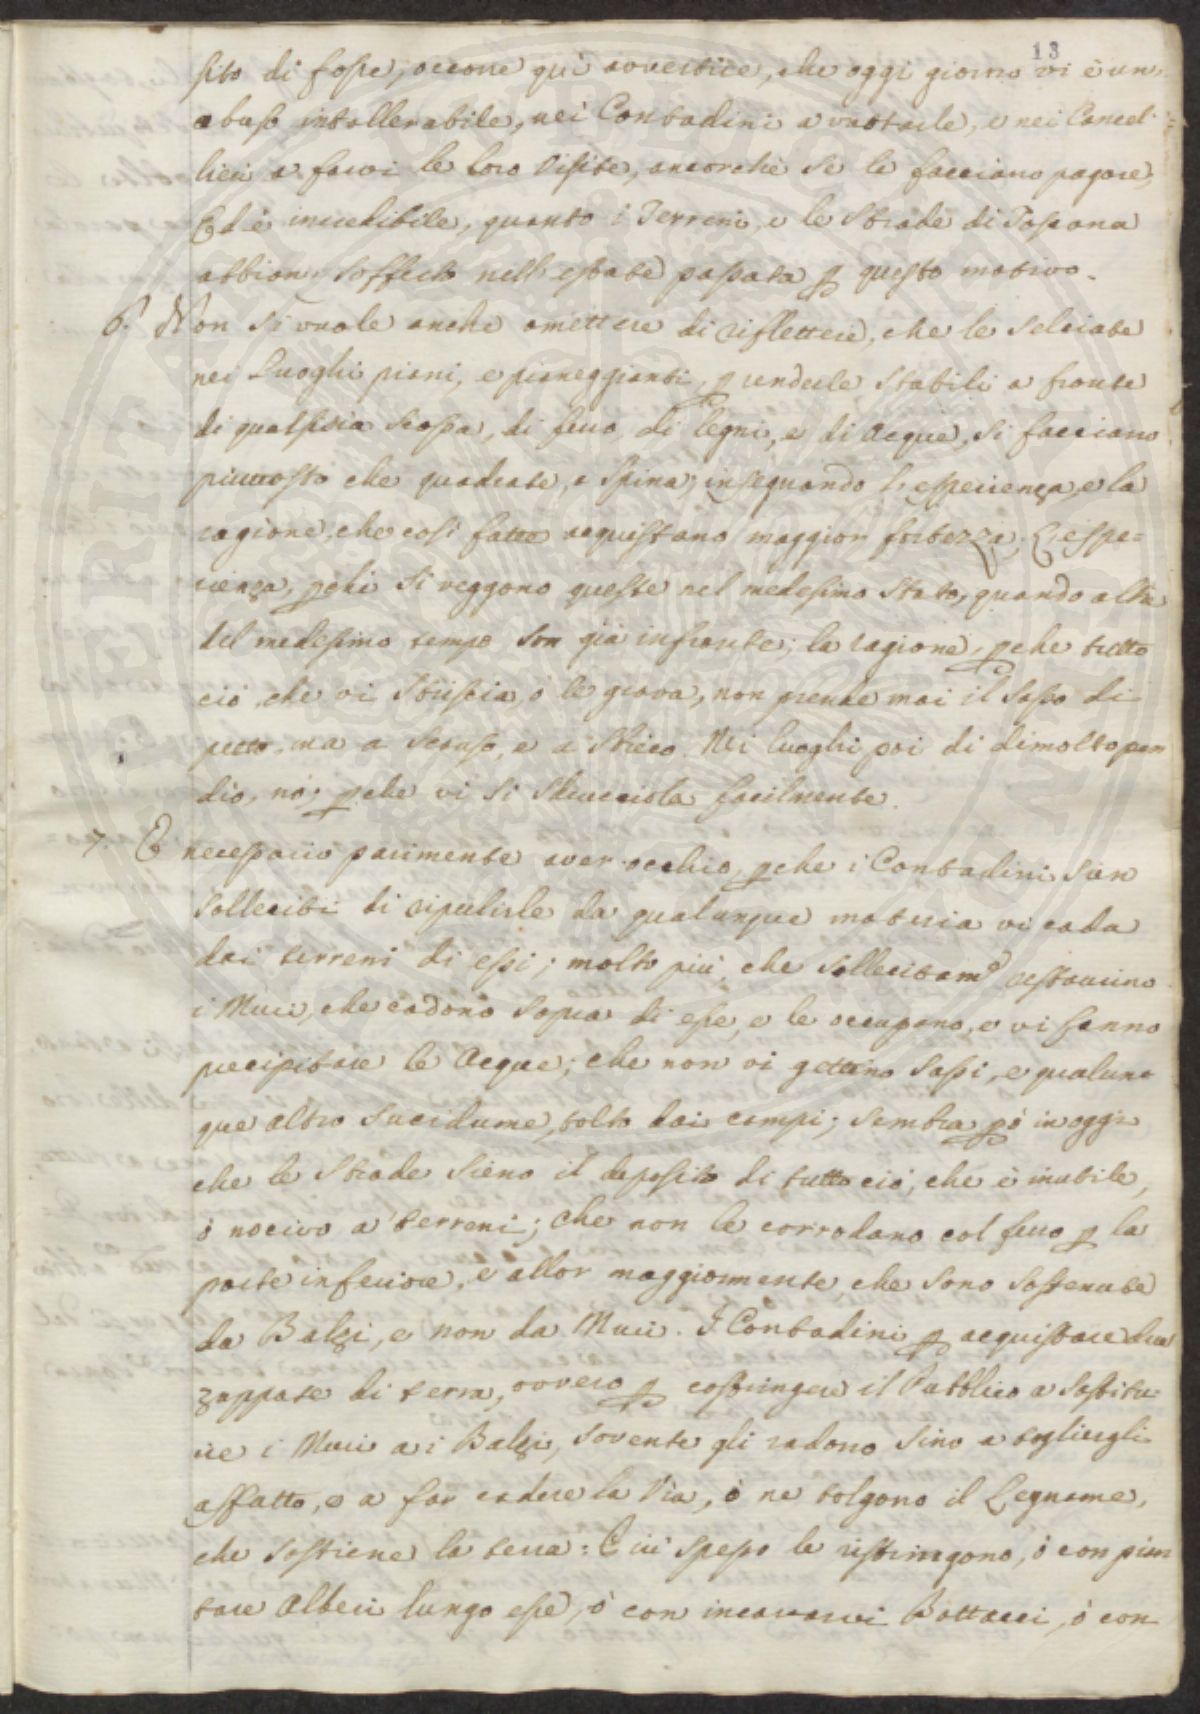 13
sito di fosse, occorre quì avvertire, che oggi giorno vi è un'
abuso intollerabile, nei Contadini a vuotarle, e nei Cancel-
lieri a farvi le loro Visite, ancorchè se le facciano pagare,
Ed è incredibile, quanto i Terreni, e le Strade di Toscana
abbian sofferto nell'estate passata p questo motivo.
6. Non si vuole anche omettere di riflettere, che le selciate
nei Luoghi piani, e pianeggianti, p renderle stabili a fronte
di qualsisia scossa, di ferro, di legni, e di Acque, si facciano
piuttosto che quadrate, a spina; insegnando l'esperienza, e la
ragione, che così fatte acquistano maggior fortezza. L'espe=
rienza, pchè si veggono queste nel medesimo stato, quando altre
del medesimo tempo son già infrante; la ragione, pche tutto
ciò, che vi striscia, ò le grava, non prende mai il sasso di
petto, ma a scanso, e a sbieco. Nei luoghi poi di dimolto pen
dio, nò; pche vi si sdrucciola facilmente.
7. È necessario parimente aver occhio, pche i Contadini sian
solleciti di ripulirle da qualunque materia vi cada
dai terreni di essi; molto più, che sollecitam.e restaurino
i Muri, che cadono sopra di esse, e le occupano, e vi fanno
precipitare le Acque; che non vi gettino sassi, e qualun=
que altro sucidume, tolto dai campi; sembra pò in oggi
che le Strade sieno il deposito di tutto ciò, che è inutile,
ò nocivo a' terreni; che non le corrodano col ferro p la
parte inferiore, e allor maggiormente, che sono sostenute
da Balzi, e non da Muri. I Contadini p acquistare due
zappate di terra, ovvero p costringere il Pubblico a sostitu-
ire i Muri ai Balzi, sovente gli radono sino a togliergli
affatto, e a far cadere la Via, ò ne tolgono il Legname,
che sostiene la terra: E più spesso le ristringono, ò con pian
tare Alberi lungo esse, ò con incavarvi Bottacci, ò con